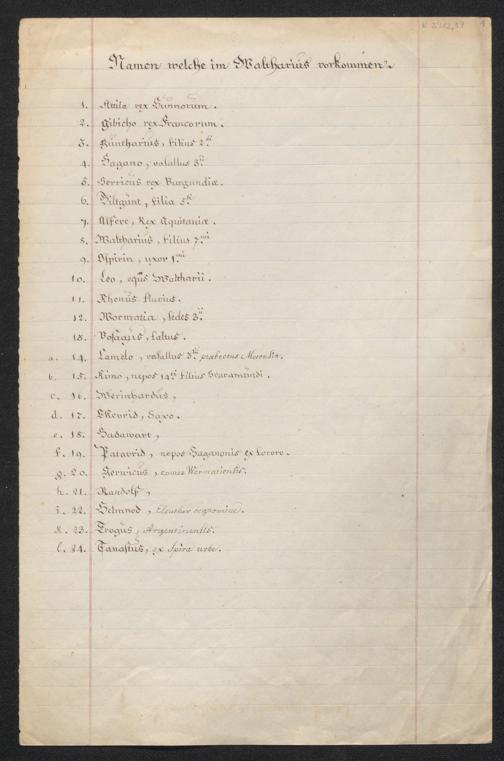 Namen welche im Waltharius vorkommen.
1. Attila rex Hunnorum.
2. Gibicho rex Francorum.
3. Guntharius, filius 2di
4. Hagano, vasallus 3tii
5. Herricus rex Burgundiæ.
6. Hiltgunt, filia 5ti
7. Alfere, Rex Aquitaniæ.
8. Waltharius, filius 7mi
9. Ospirin, uxor 1mi
10. Leo, equs Waltharii.
11. Rhenus fluvius.
12. Wormatia, sedes 3tii
13. Vosagus, saltus.
a. 14. Camelo, vasallus 3tii præfectus Metensis.
b. 15. Kimo, nepos 14ti filius Scaramundi.
c. 16. Werinhardus,
d. 17. Ekevrid, Saxo.
e. 18. Hadawart,
f. 19. Patavrid, nepos Haganonis ex sorore.
g. 20. Gerwicus, comes Wormatiensis.
h. 21. Randolf,
i. 22. Helmnod, Eleuthir cognomine.
k. 23. Trogus, Argentinensis.
l. 24. Tanastus, ex Spira urbe.